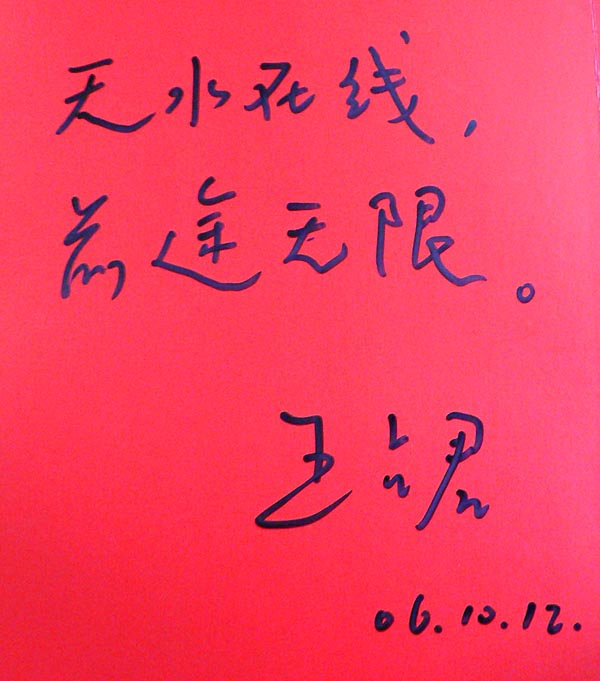 天水在线，
前途无限。
王
06.10.12.